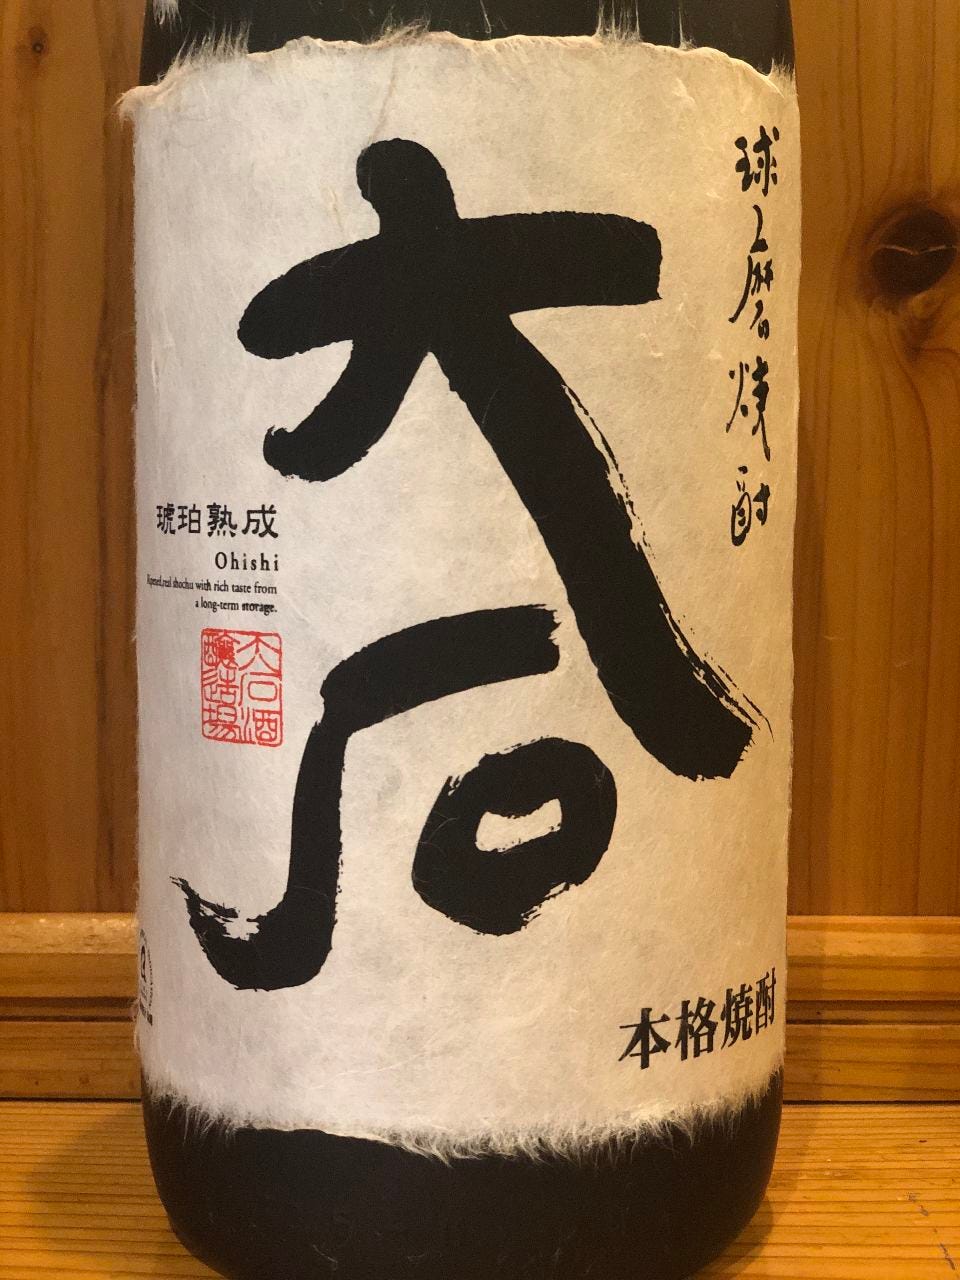 球磨焼酎
大石
琥珀熟成
Ohishi
Ripened,real shochu with rich taste from
a long-term storage.
大石酒
醸造場
本格焼酎